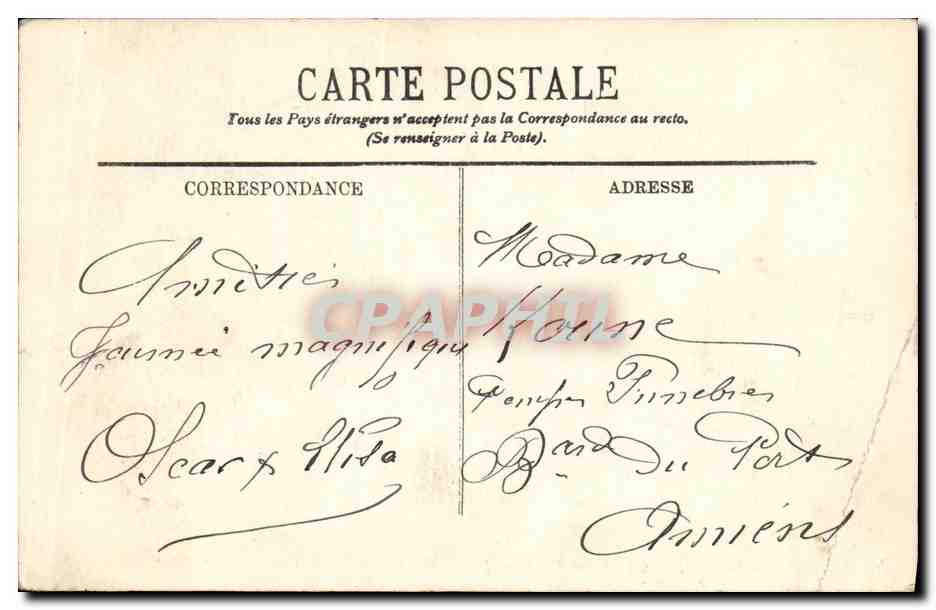 CARTE POSTALE
Tous les Pays étrangers n'acceptent pas la Correspondance au recto.
(Se renseigner à la Poste).
CORRESPONDANCE
Amitiés
Journée magnifique
Oscar & Elisa
ADRESSE
Madame
Kousne
Pompes Funèbres
Bard du Port
Amiens
CPAPHIL